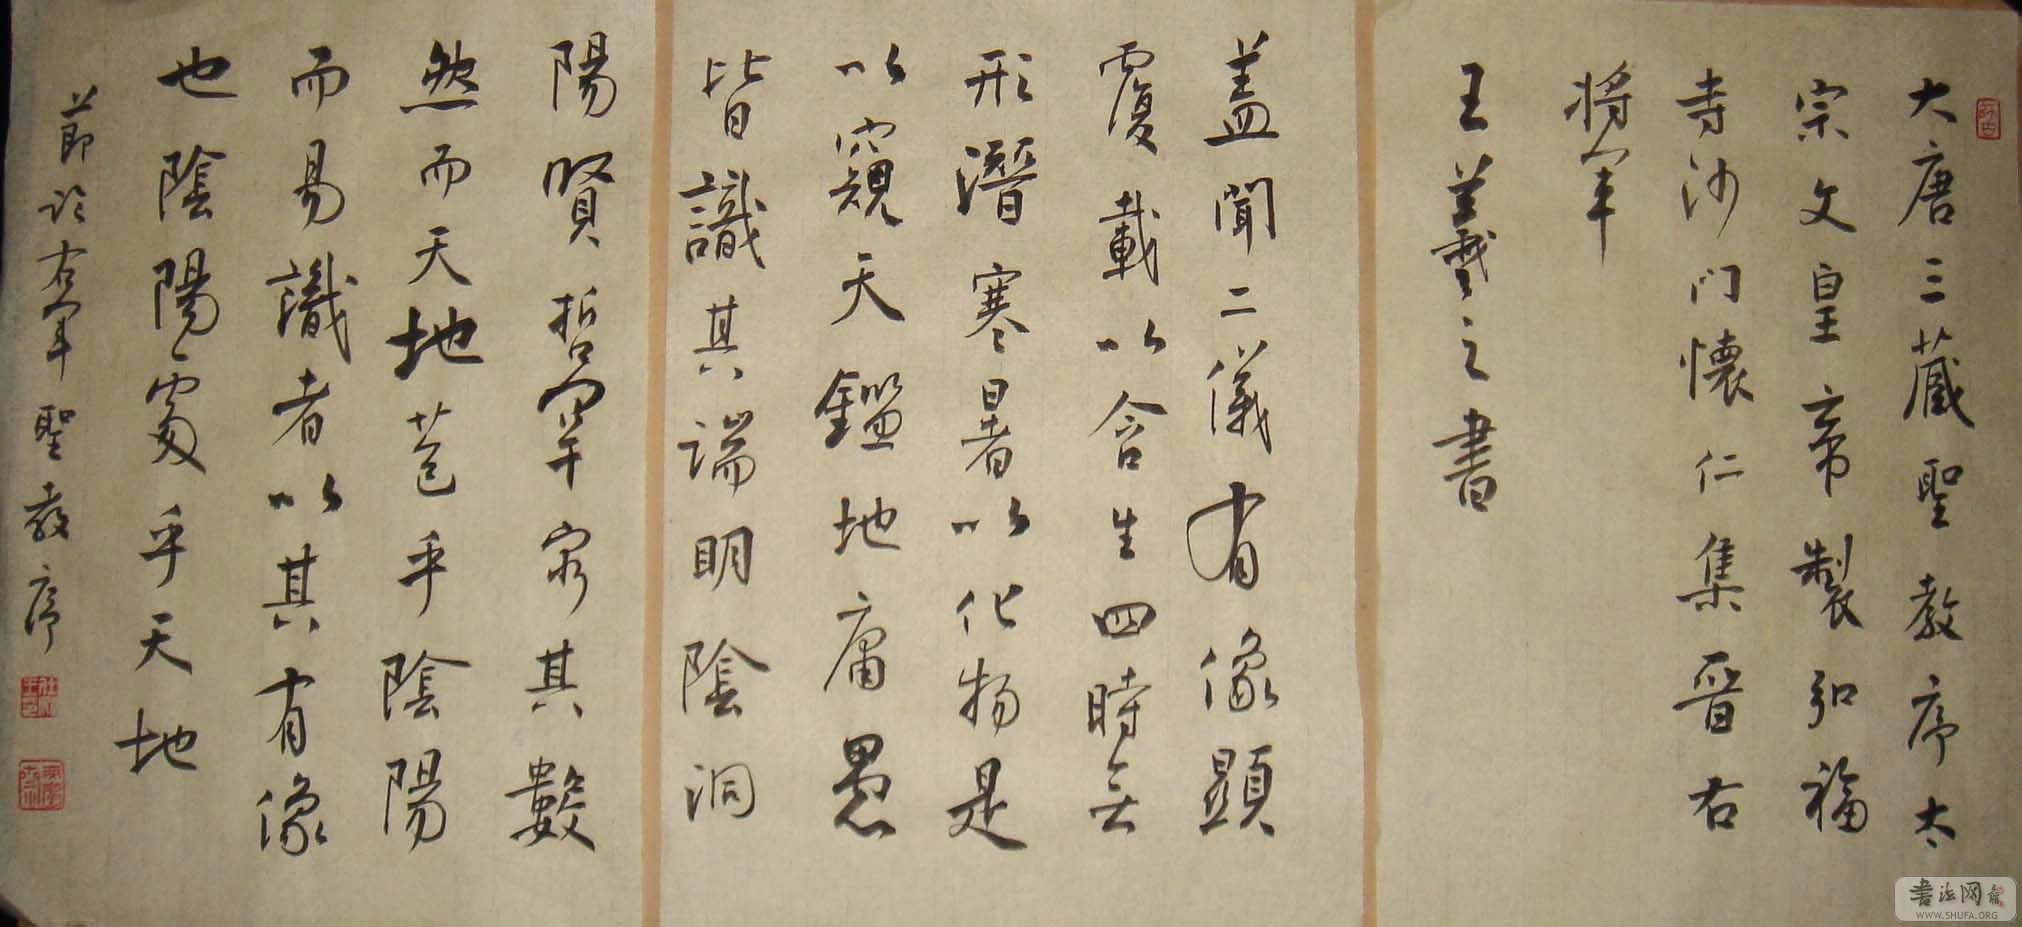 大唐三藏聖教序太
宗文皇帝製弘福
寺沙门懷仁集晋右
将军
王羲之書
盖聞二儀有像顯
覆載以含生四時无
形潛寒暑以化物是
以窺天鑑地庸愚
皆識其端明陰洞
陽賢哲罕窮其數
然而天地苞乎陰陽
而易識者以其有像
也陰陽處乎天地
節臨右军聖教序
書法网
WWW.SHUFA.ORG